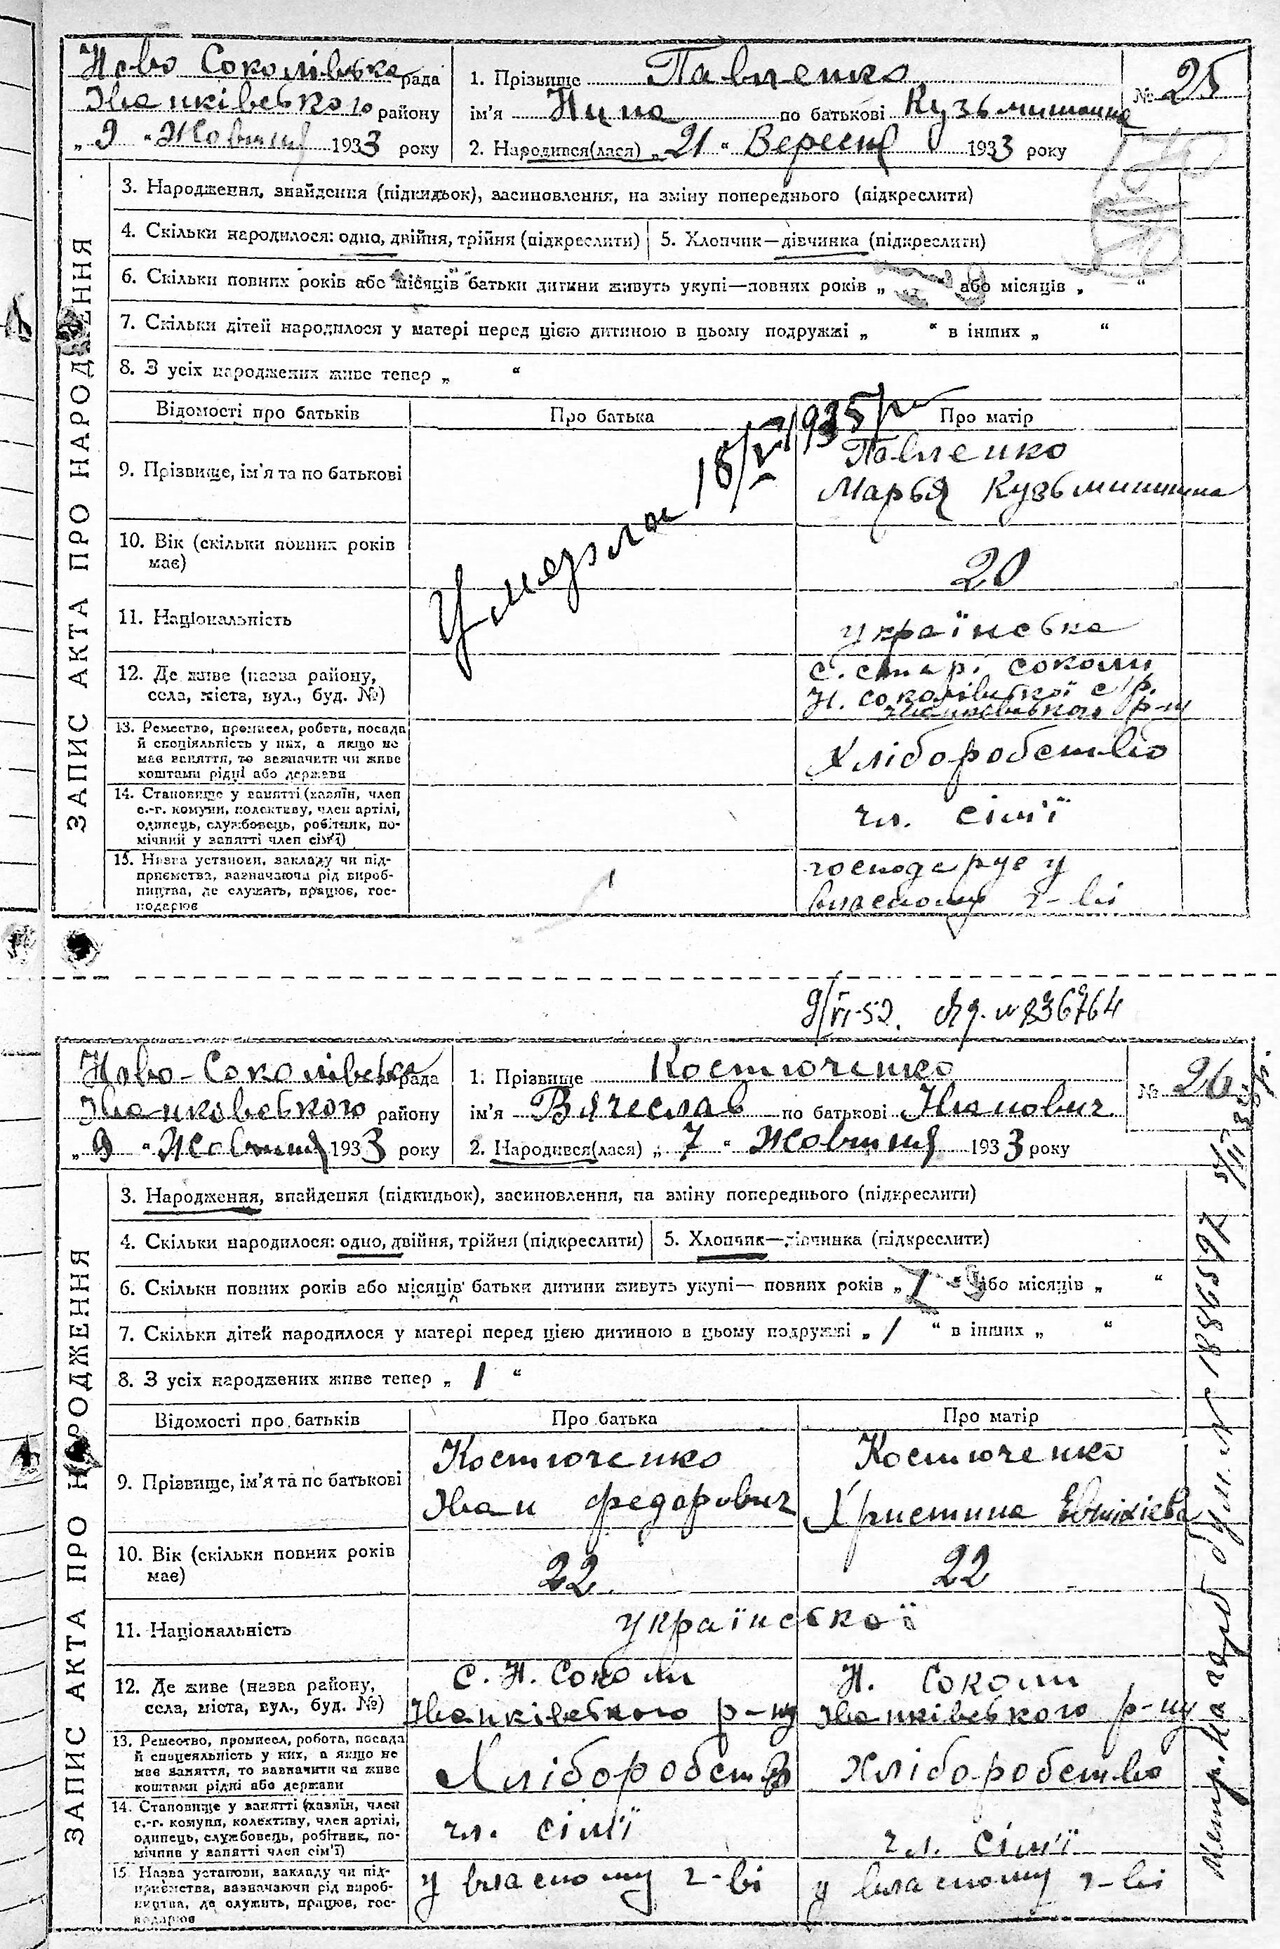 Ново Соколівська рада
Іванківського району
„ 9 " Жовтня 1933 року
1. Прізвище Павленко
ім'я Нина по батькові Кузьминична
2. Народився(лася) „ 21 " Вересня 1933 року
№ 25
ЗАПИС АКТА ПРО НАРОДЖЕННЯ
3. Народження, знайдення (підкидьок), засиновлення, на зміну попереднього (підкреслити)
4. Скільки народилося: одно, двійня, трійня (підкреслити)
5. Хлопчик—дівчинка (підкреслити)
6. Скільки повних років або місяців батьки дитини живуть укупі—повних років „ " або місяців „ "
7. Скільки дітей народилося у матері перед цією дитиною в цьому подружжі „ " в інших „ "
8. З усіх народжених живе тепер „ "
Відомості про батьків
Про батька
Про матір
9. Прізвище, ім'я та по батькові
Павленко
Марья Кузьминишна
Умерла 18/V 1935 р
10. Вік (скільки повних років має)
20
11. Національність
українська
12. Де живе (назва району, села, міста, вул., буд. №)
с. стар. соколи
Н. соколівської с/р.
Іванківського р-ну
13. Ремество, промисел, робота, посада
й спеціяльність у них, а якщо не
має заняття, то зазначити чи живе
коштами рідні або держави
Хліборобство
14. Становище у занятті (хазяїн, член
с.-г. комуни, колективу, член артілі,
одинець, службовець, робітник, по-
мічний у занятті член сім'ї)
чл. сім'ї
15. Назва установи, закладу чи під-
приємства, зазначаючи рід вироб-
ництва, де служить, працює, гос-
подарює
господарує у
власному г-ві
9/VI-52.
№ 836764
Ново-Соколівська рада
Іванківського району
„ 9 " Жовтня 1933 року
1. Прізвище Костюченко
ім'я Вячеслав по батькові Іванович
2. Народився(лася) „ 7 " Жовтня 1933 року
№ 26
ЗАПИС АКТА ПРО НАРОДЖЕННЯ
3. Народження, знайдення (підкидьок), засиновлення, на зміну попереднього (підкреслити)
4. Скільки народилося: одно, двійня, трійня (підкреслити)
5. Хлопчик—дівчинка (підкреслити)
6. Скільки повних років або місяців батьки дитини живуть укупі— повних років „ 1 " або місяців „ "
7. Скільки дітей народилося у матері перед цією дитиною в цьому подружжі „ 1 " в інших „ "
8. З усіх народжених живе тепер „ 1 "
Відомості про батьків
Про батька
Про матір
9. Прізвище, ім'я та по батькові
Костюченко
Іван федорович
Костюченко
Христина
10. Вік (скільки повних років має)
22
22
11. Національність
української
12. Де живе (назва району, села, міста, вул., буд. №)
с. Н. Соколи
Іванківського р-ну
Н. Соколи
Іванківського р-ну
13. Ремество, промисел, робота, посада
й спеціяльність у них, а якщо не
має заняття, то зазначити чи живе
коштами рідні або держави
Хліборобств
хліборобство
14. Становище у занятті (хазяїн, член
с.-г. комуни, колективу, член артілі,
одинець, службовець, робітник, по-
мічний у занятті член сім'ї)
чл. сім'ї
чл. сім'ї
15. Назва установи, закладу чи під-
приємства, зазначаючи рід вироб-
ництва, де служить, працює, гос-
подарює
у власному г-ві
у власному г-ві